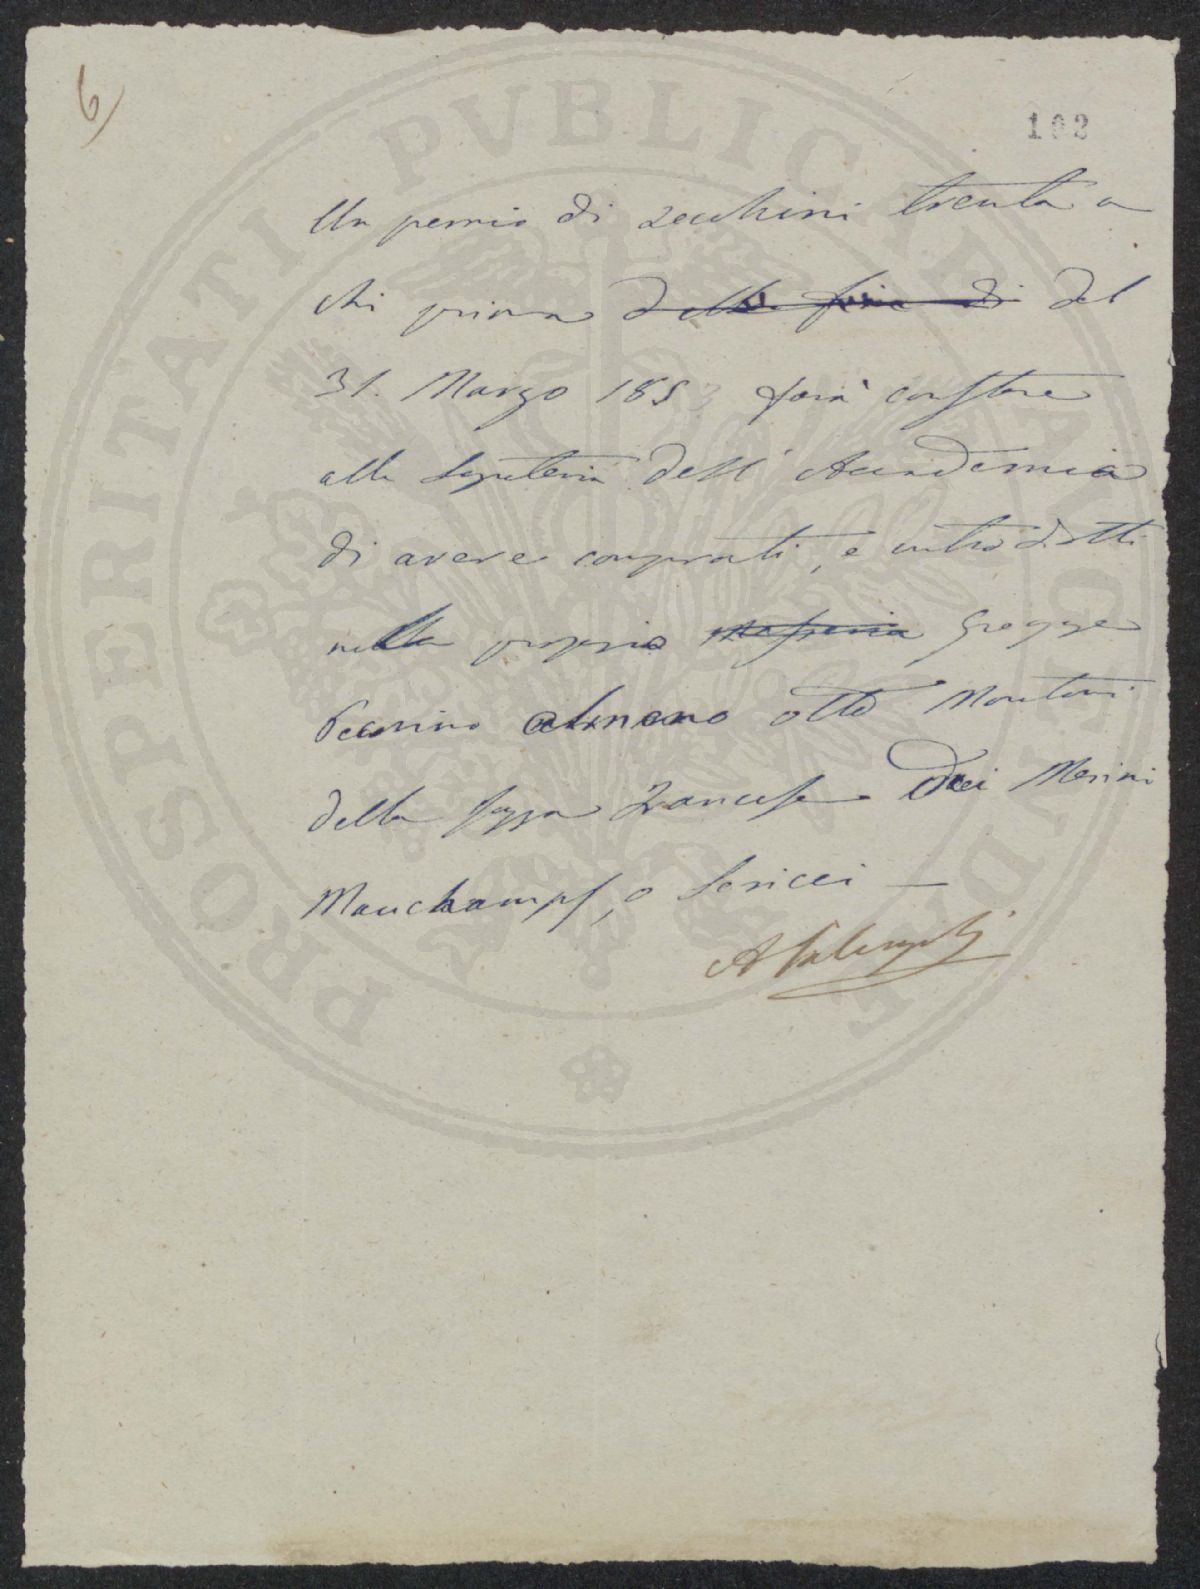 6
102
Un pemio di zecchini trenta a
chi prima della fine di del
31. Marzo 1853 farà constare
alla Segreteria dell' Accademia
di avere comprati, e introdotti
nella proprio Gregge
Pecorino almeno otto Montoni
della razza Francese Dei Merini
Mauchampf, o Sericei —
PROSPERITATI PVBLICAE AVGENDAE